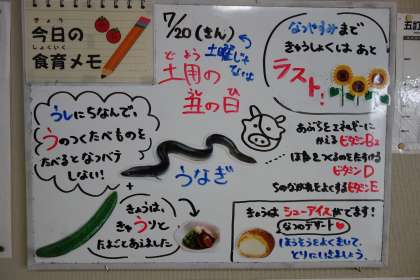 きょう
今日の
しょくいく
食育メモ
7/20(きん)
土曜じゃ
ないよ
どよう
土用の
丑の日
なつやすみまで
きゅうしょくは あと
ラスト!
うしにちなんで、
うのつくたべものを
たべるとなつバテ
しない!
うなぎ
あぶらをエネルギーに
かえる ビタミンB2
ほねをつくるのをたすける
ビタミンD
ちのながれをよくする ビタミンE
+
きょうは、
きゅうりと
たまごとあえました
きょうは シューアイスがでます!
なつのデザート
ほうそうをよくきいて、
とりにいきましょう。